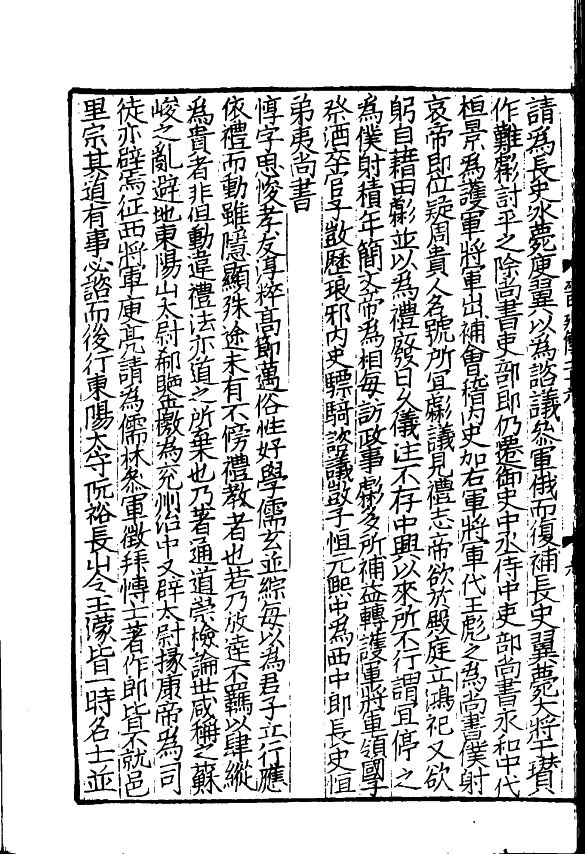 請為長史冰薨庾翼以為諮議參軍俄而復補長史翼薨大將干瓚
作難虨討平之除尚書吏部郎仍遷御史中丞侍中吏部尚書永和中代
桓景為護軍將軍出補會稽內史加右軍將軍代王彪之為尚書僕射
哀帝即位疑周貴人名號所宜虨議見禮志帝欲於殿庭立鴻祀又欲
躬自藉田虨並以為禮廢日久儀注不存中興以來所不行謂宜停之
為僕射積年簡文帝為相每訪政事虨多所補益轉護軍將軍領國子
祭酒卒官子敳歷琅邪內史驃騎諮議敳子恒元熙中為西中郎長史恒
弟夷尚書
惇字思悛孝友淳粹高節邁俗性好學儒玄並綜每以為君子立行應
依禮而動雖隱顯殊途未有不傍禮教者也若乃放達不羈以肆縱
為貴者非但動違禮法亦道之所棄也乃著通道崇檢論世咸稱之蘇
峻之亂避地東陽山太尉郗鑒檄為兗州治中又辟太尉掾康帝為司
徒亦辟焉征西將軍庾亮請為儒林參軍徵拜博士著作郎皆不就邑
里宗其道有事必諮而後行東陽太守阮裕長山令王濛皆一時名士並